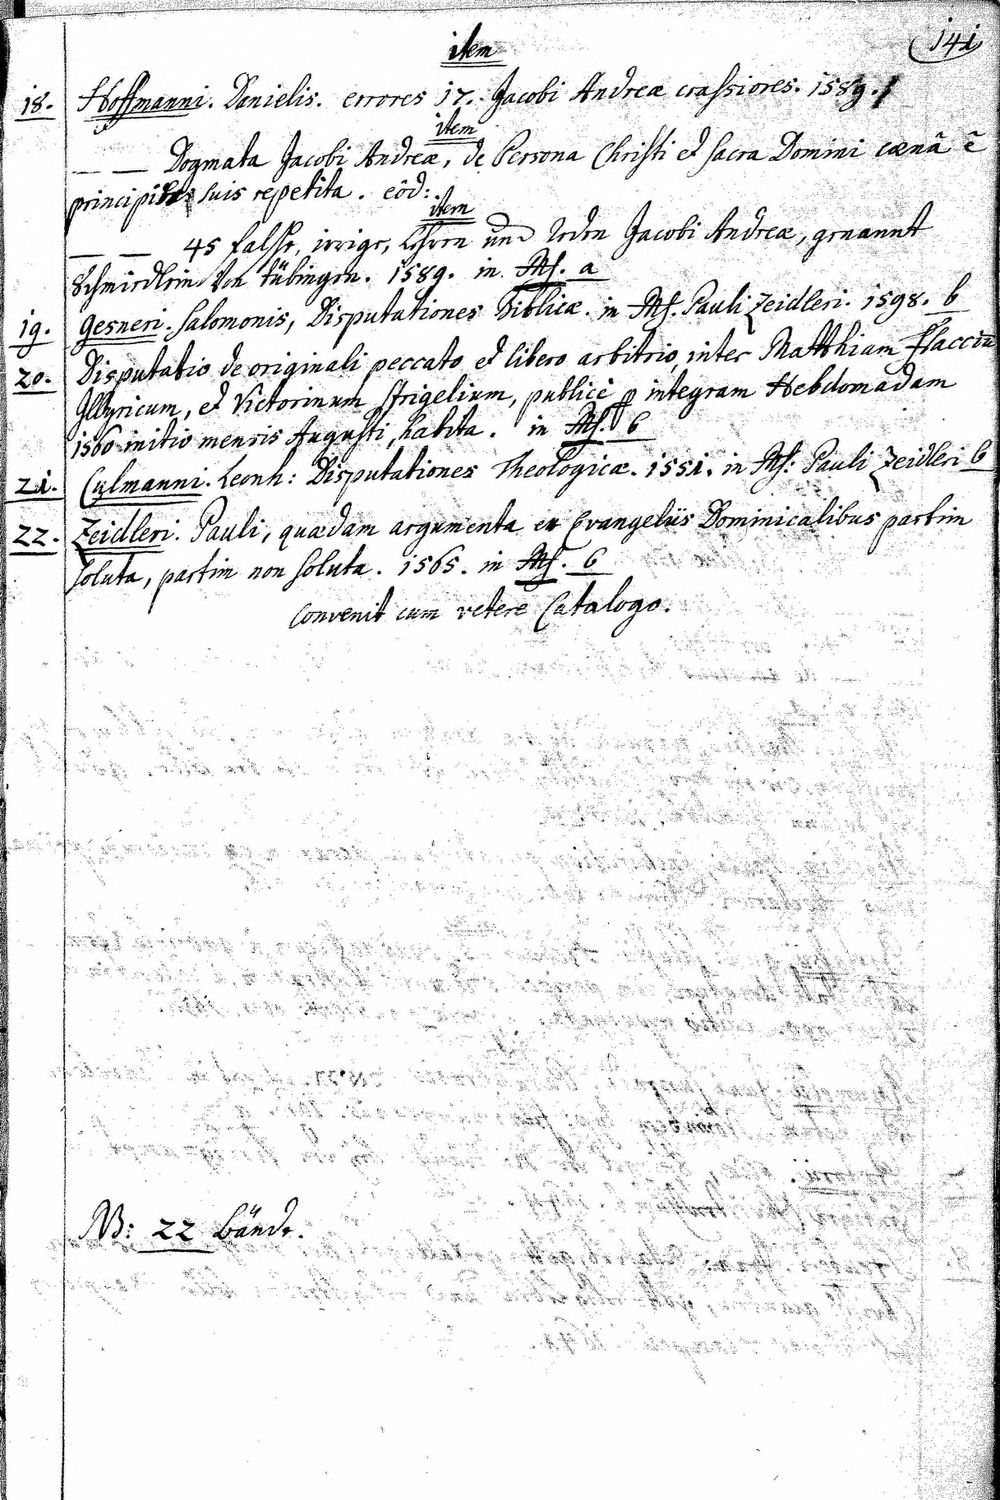 141
item
18. Hoffmanni. Danielis. errores 17. Jacobi Andreæ crassiores. 1589.
item
— — Dogmata Jacobi Andreæ, de Persona Christi et sacra Domini cænâ ẽ
principiis suis repetita. eôd:
item
— — 45 falsche, irrige, Lehren und Reden Jacobi Andreæ, genannt
Schmidlein von Tübingen. 1589. in Ms. a
19. Gesneri. Salomonis, Disputationes Biblicæ. in Ms. Pauli Zeidleri. 1598. b
20. Disputatio de originali peccato et libero arbitrio, inter Matthiam Flaccium
Illyricum, et Victorinum Strigelium, publicè p integram Hebdomadam
1560 initio mensis Augusti, habita. in Ms. b
21. Culmanni. Leonh: Disputationes Theologicæ. 1551. in Ms: Pauli Zeidleri b
22. Zeidleri. Pauli, quædam argumenta ex Evangeliis Dominicalibus partim
soluta, partim non soluta. 1565. in Ms. b
Convenit cum vetere Catalogo.
NB: 22 Bände.